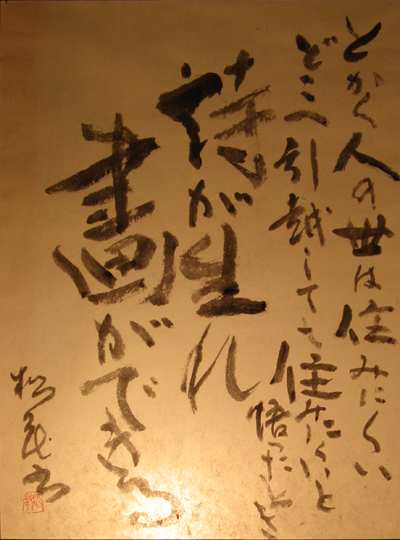 とかく人の世は住みにくい
どこへ引越しても住みにくいと
悟ったとき
詩が生れ
畫ができる
松